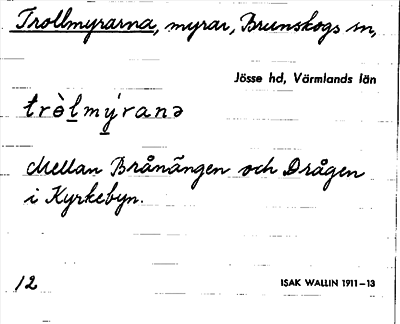 Trollmyrarna, myrar, Brunskogs sn,
Jösse hd, Värmlands län
tròlmy̱ranə
Mellan Brånängen och Drågen
i Kyrkebyn.
12
ISAK WALLIN 1911–13